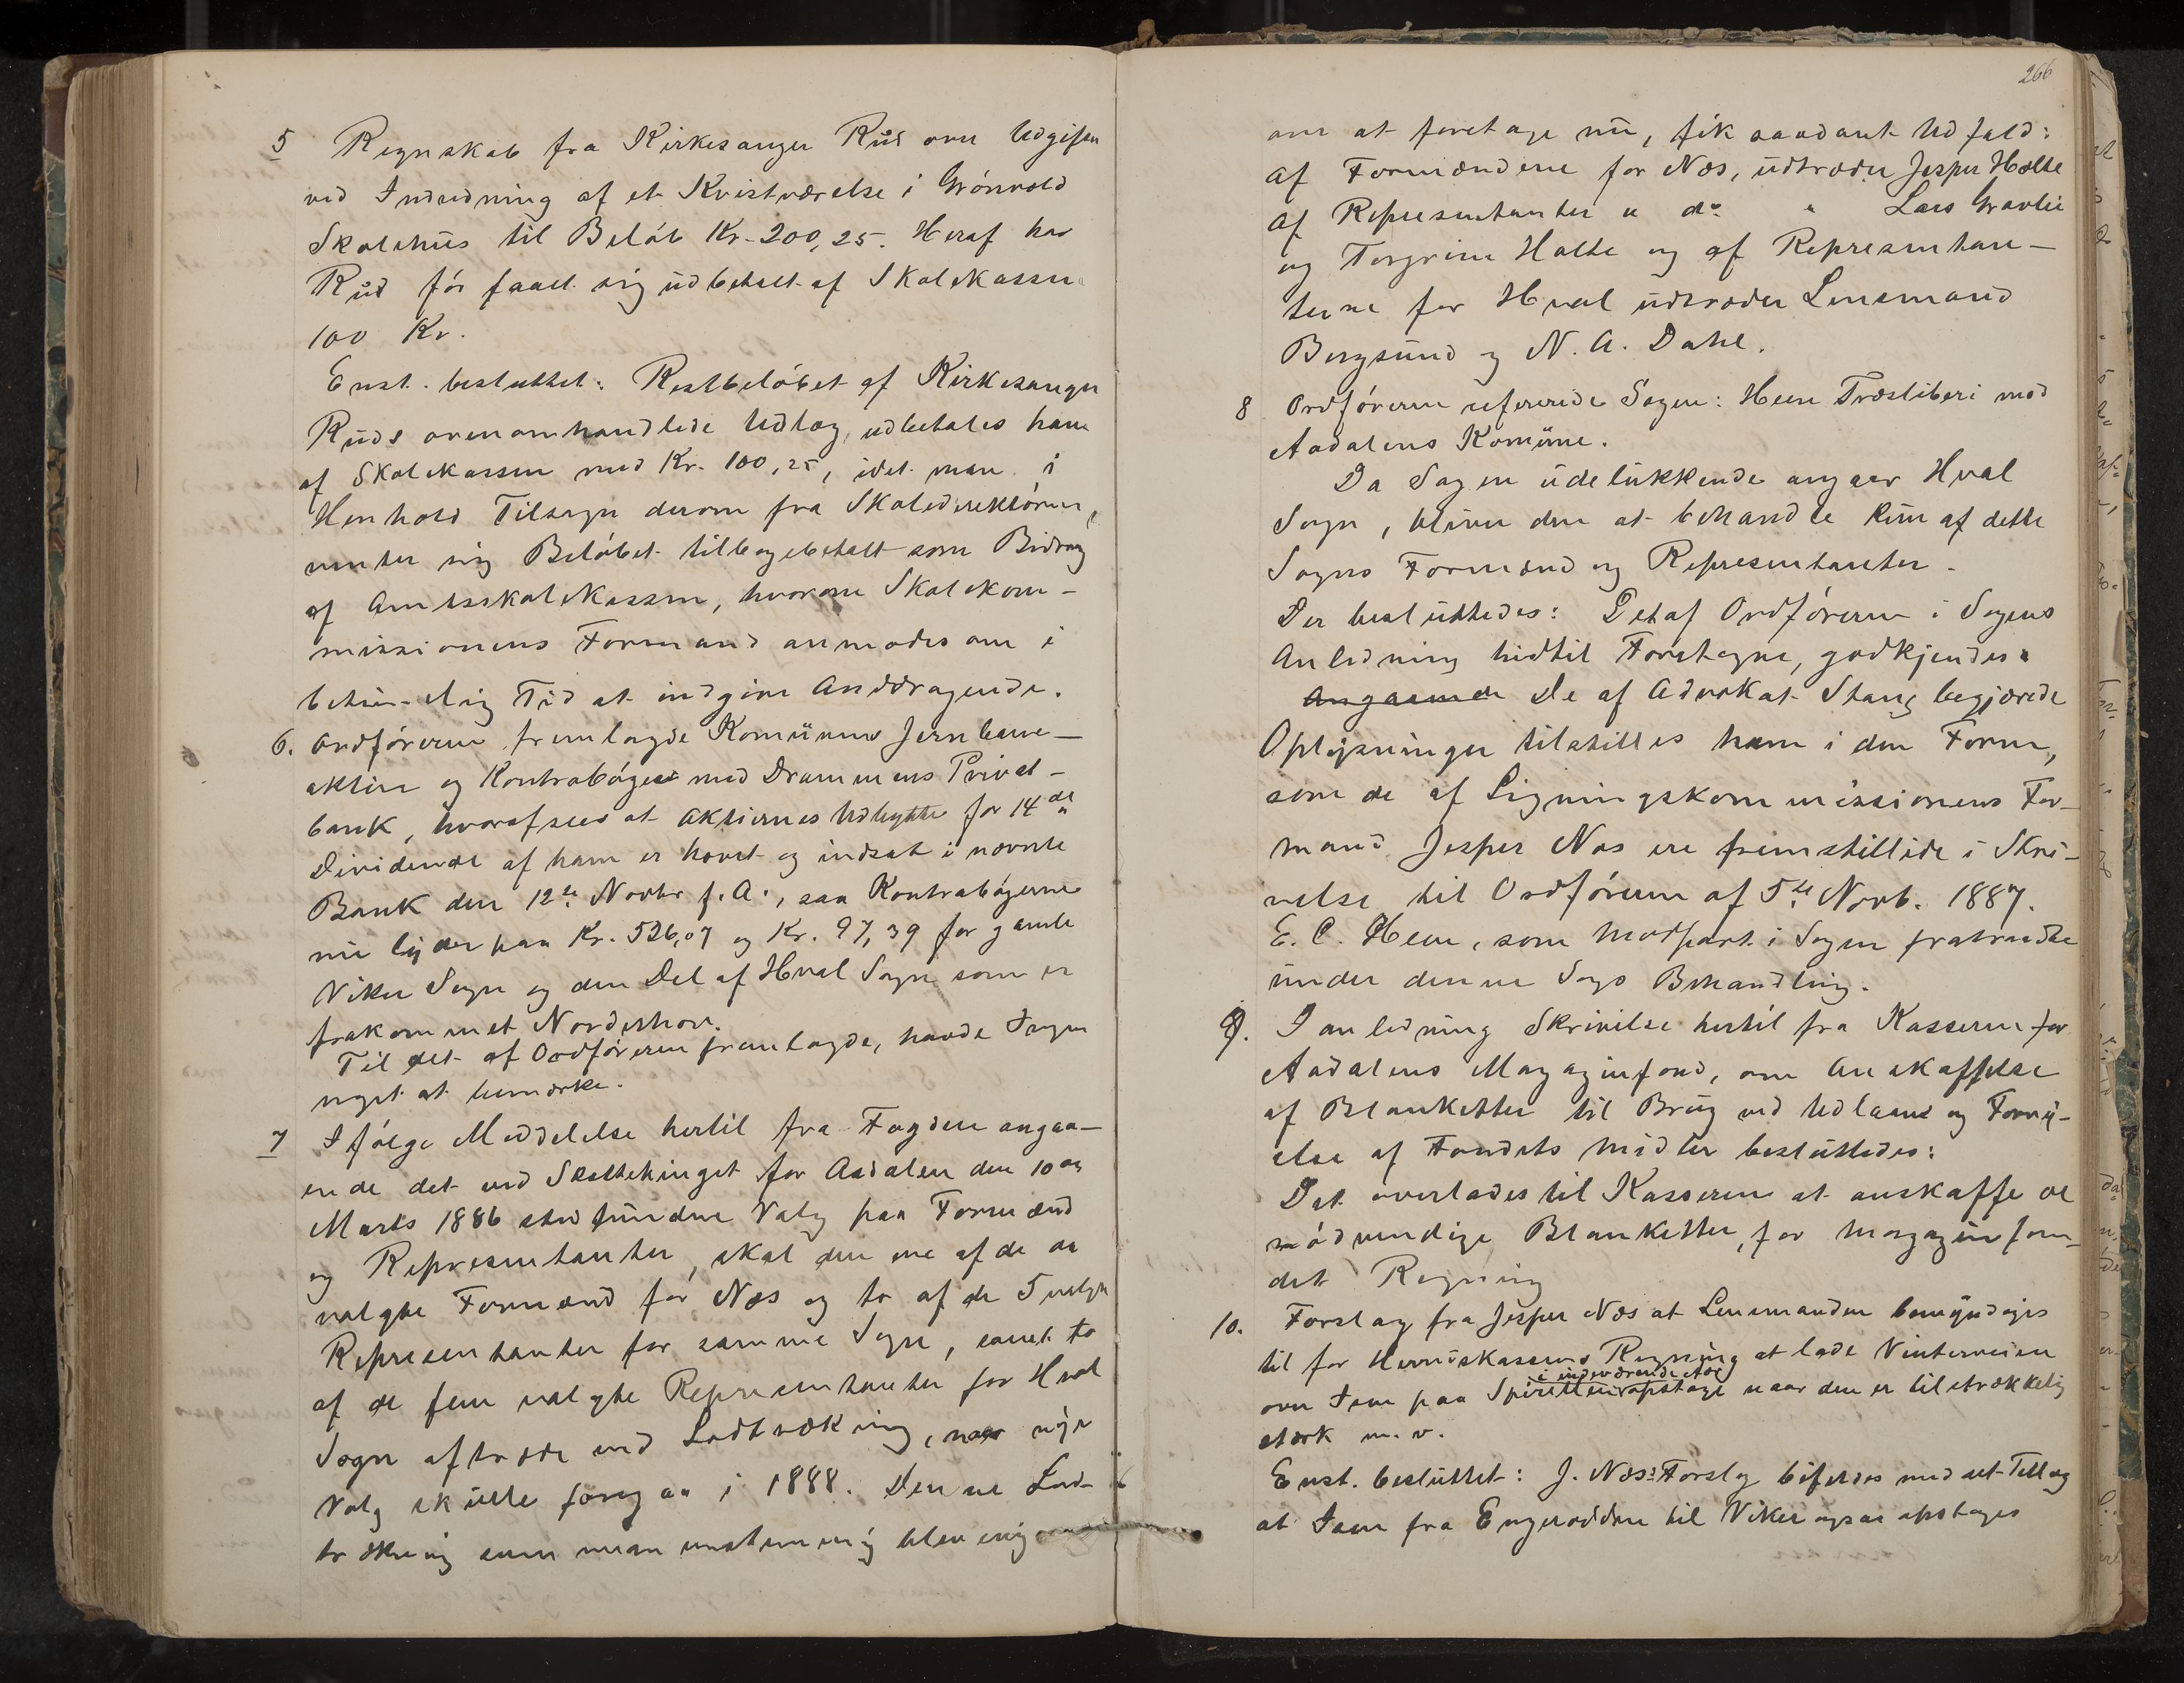 5 Regnskab fra Kirkesanger Rud over Udgifter
ved Indredning af et Kvistværelse i Grönvold
Skolehus til Beløb Kr. 200,25. Heraf har
Rud før faaet sig udbetalt af Skolekassen
100 Kr.
Enst. besluttet: Restbeløbet af Kirkesanger
Ruds ovenomhandlede Udlæg, udbetales ham
af Skolekassen med Kr. 100,25, idet man i
Henhold Tilsagn derom fra Skoledirektøren,
venter sig Beløbet tilbagebetalt som Bidrag
af Amtsskolekassen, hvorom Skolekom-
missionens Formand anmodes om i
betimelig Tid at indgive Anddragende.
6. Ordføreren fremlagde Komünens Jernbane-
aktier og Kontrabøger med Drammens Privat-
bank, hvoraf sees at Aktiernes Udbytte for 14de
Dividende af ham er hævet og indsat i nævnte
Bank den 12te Novbr f. A., saa Kontrabøgerne
nu lyder paa Kr. 526,07 og Kr. 97,39 for gamle
Viker Sogn og den Del af Hval Sogn som er
frakommet Norderhov.
Til det af Ordføreren fremlagde, havde Ingen
noget at bemærke.
7 Ifølge Meddelelse hertil fra Fogden angaa-
ende det ved Skattethinget for Aadalen den 10de
Marts 1886 stedfundne Valg paa Formænd
og Representanter, skal den ene af de
valgte Formænd for Næs og to af de 5 valgte
Representanter for samme Sogn, samt to
af de fem valgte Representanter for Hval
Sogn aftræde ved Lodtrækning, naar nye
Valg skulle foregaa i 1888. Denne Lod-
trækning som man enstemmig blev enig
266
om at foretage nu, fik saadant Udfald:
af Formændene for Næs, udtræder Jesper Hælte
af Representanter " do " Lars Gravlie
og Torgrim Holte og af Representan-
terne for Hval udtræder Lensmand
Bergsund og N. A. Dahl.
8 Ordføreren refererede Sagen: Heen Træsliberi mod
Aadalens Komüne.
Da Sagen udelukkende angaar Hval
Sogn, bliver den at behandle kun af dette
Sogns Formænd og Representanter.
Der besluttedes: Det af Ordføreren i Sagens
Anledning hidtil Foretagne, godkjendes.
Angaaende De af Advokat Stang begjærede
Oplysninger tilstilles ham i den Form,
som de af Ligningskommissionens For-
mand Jesper Næs ere fremstillede i Skri-
velse til Ordføreren af 5te Novb. 1887.
E. C. Heen, som Modpart i Sagen fratraadte
under denne Sags Behandling.
9. I anledning Skrivelse hertil fra Kasseren for
Aadalens Magazinfond, om Anskaffelse
af Blanketter til Brug ved Udlaan og Forny-
else af Fondets Midler besluttedes:
Det overlades til Kasseren at anskaffe de
nødvendige Blanketter, for Magazinfon-
det Regning
10. Forslag fra Jesper Næs at Lensmanden bemyndiges
til for Herredskassens Regning at lade Vinterveien
i indeværende Aar
over Isen paa Spirillen opstage naar den er tilstrækkelig
stærk m. v.
Enst. besluttet: J. Næs: Forslag bifaldes med det Tillæg
at Isen fra Engerodden til Viker ogsaa opstages